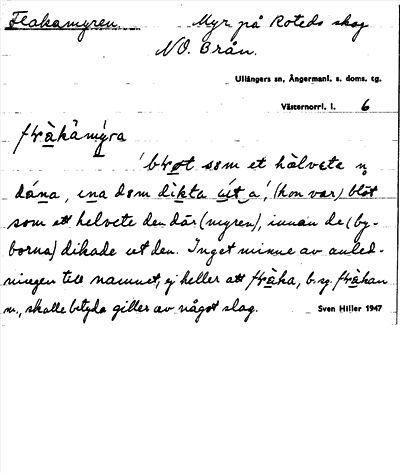 Flakamyren Myr på Roteds skog
NO. Brån.
Ullångers sn, Ångermanl. s. doms. tg.
Västernorrl. l. 6
myra
brøt søm et hælvete ṇ
dána, ına døm dıkta út a! (hon var) blöt
som ett helvete den där (myren), innan de (by-
borna) dikade ut den. Inget minne av anled-
ningen till namnet, ej heller att
m., skulle betyda giller av något slag. Sven Hiller 1947